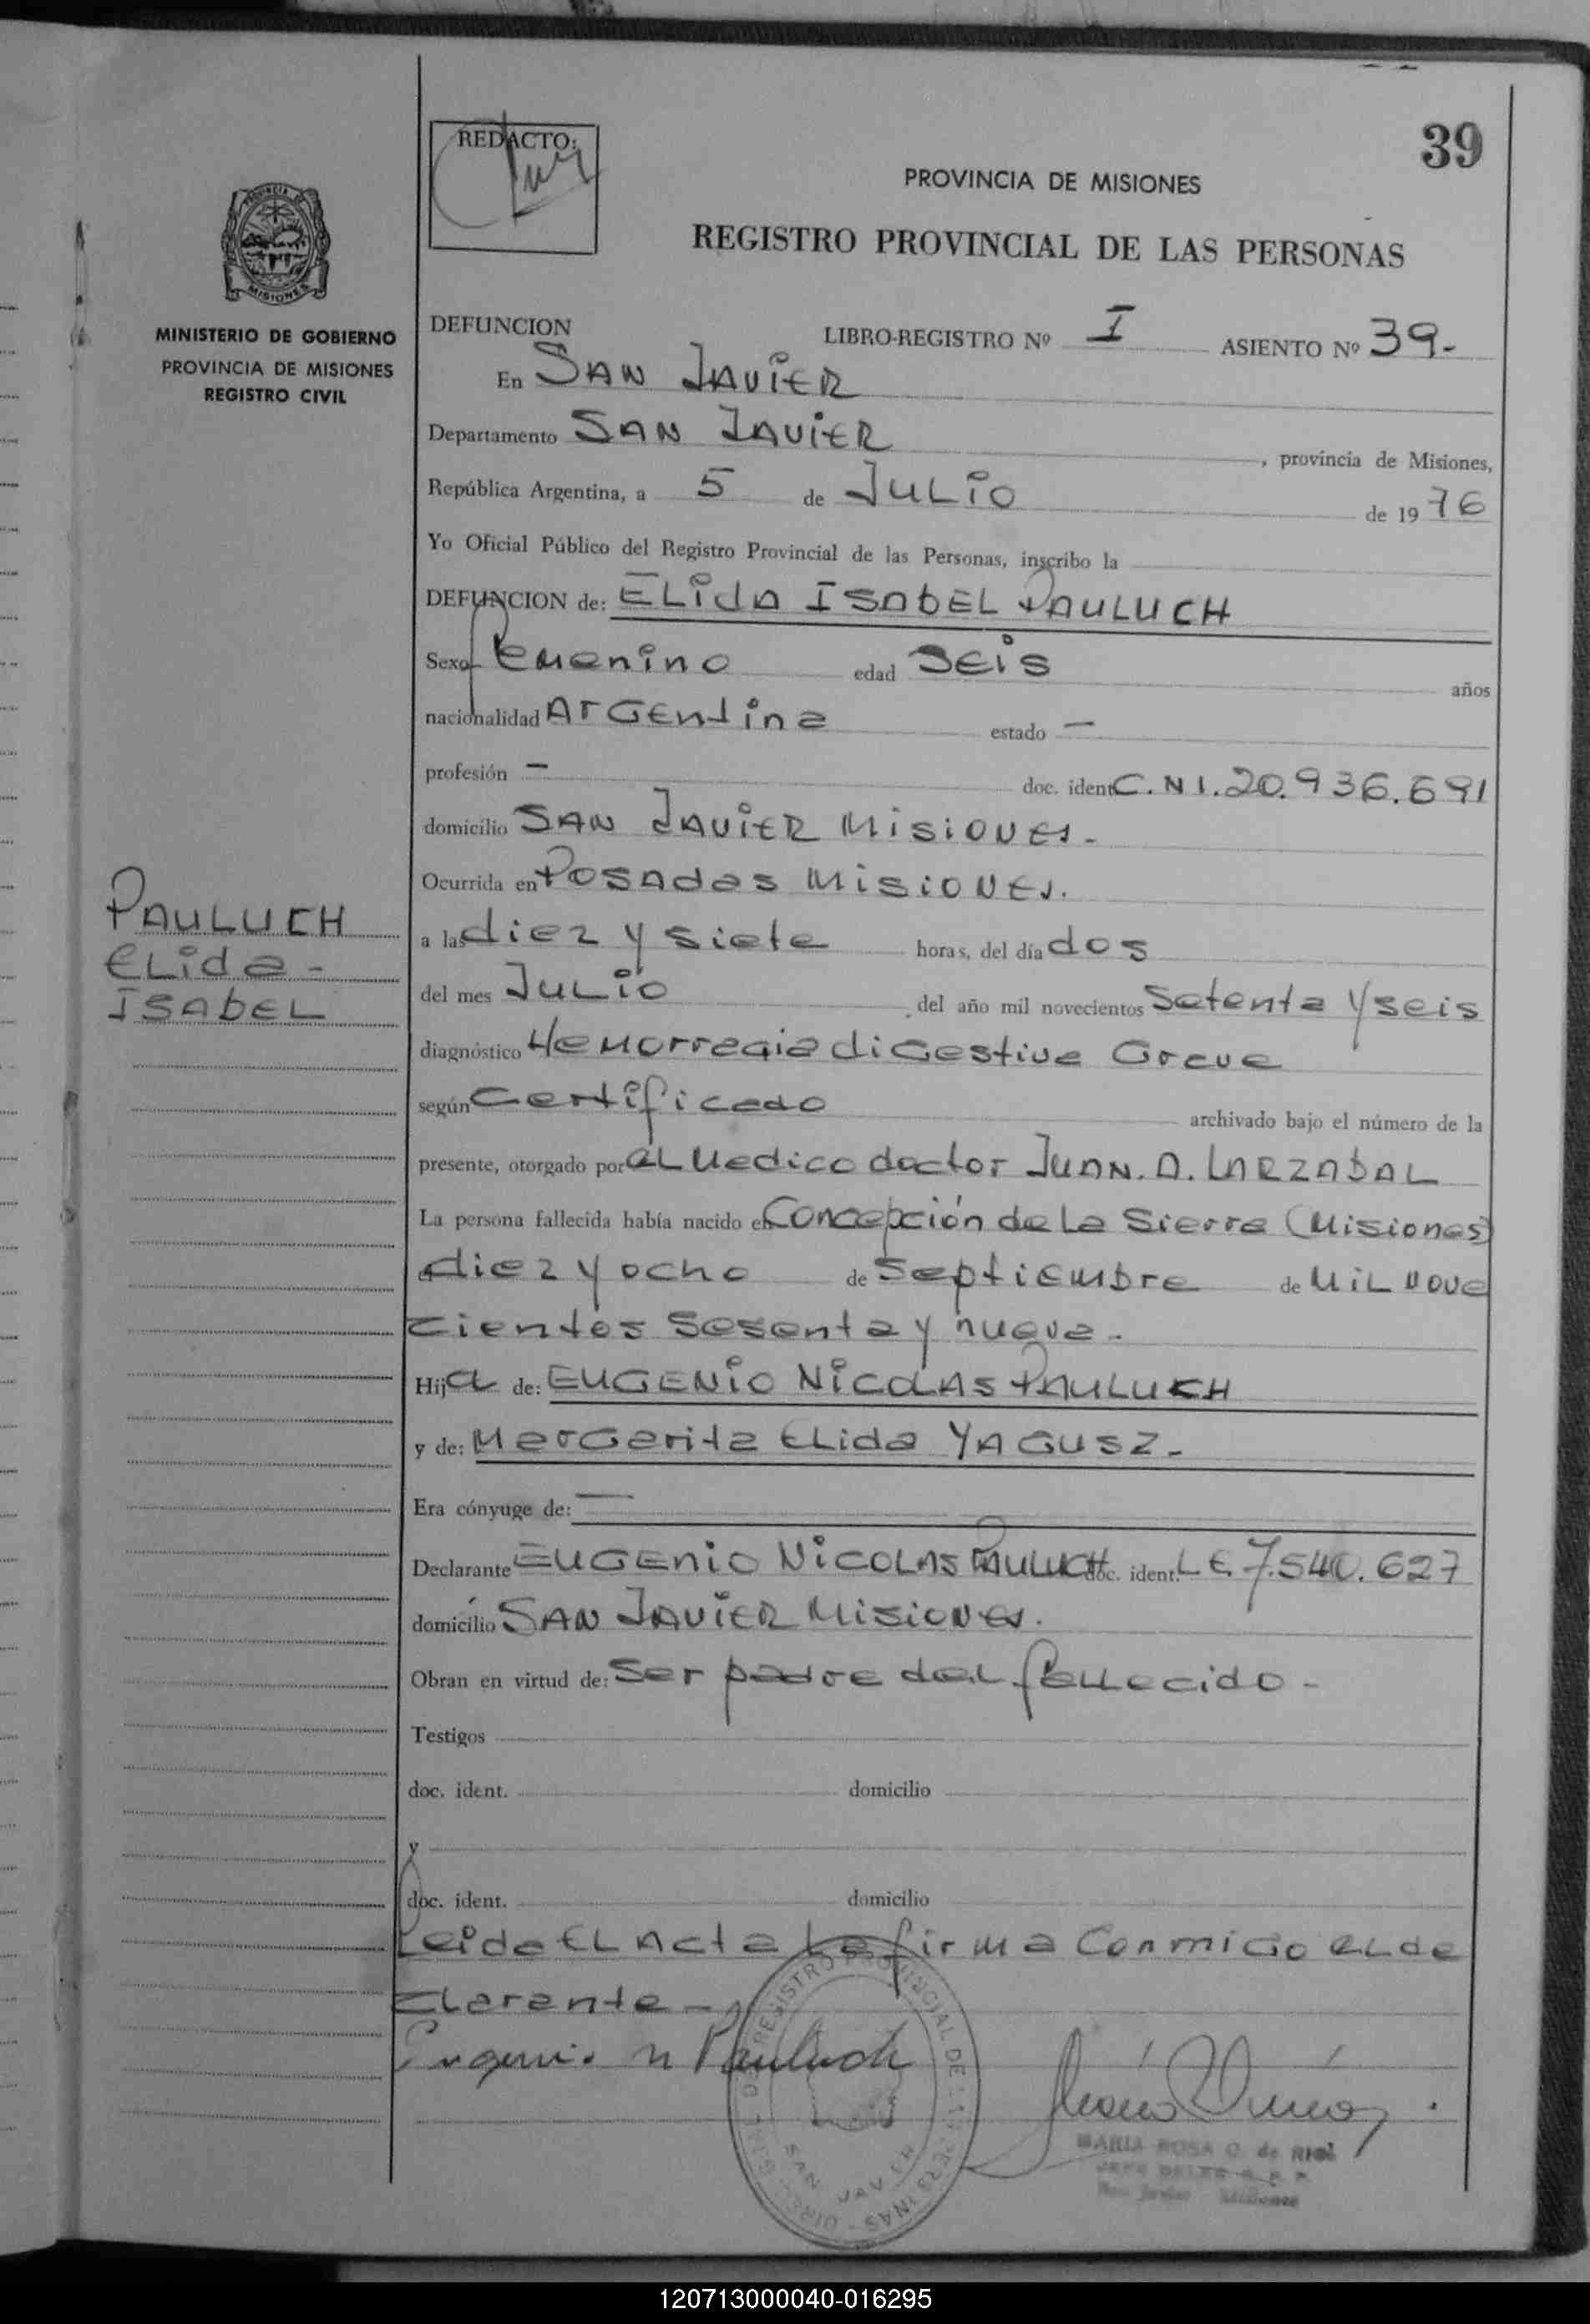 39
REDACTO:
PROVINCIA DE MISIONES
REGISTRO PROVINCIAL DE LAS PERSONAS
PROVINCIA DE
MISIONES
MINISTERIO DE GOBIERNO
PROVINCIA DE MISIONES
REGISTRO CIVIL
DEFUNCION LIBRO-REGISTRO Nº I ASIENTO Nº 39.-
En SAN JAVIER
Departamento SAN JAVIER, provincia de Misiones,
República Argentina, a 5 de JULIO de 19 76
Yo Oficial Público del Registro Provincial de las Personas, inscribo la
DEFUNCION de: ELIDA ISABEL PAULUCH
Sexo femenino edad SEIS años
nacionalidad ARGENTINA estado —
profesión — doc. ident. C.N I. 20.936.691
domicilio SAN JAVIER MISIONES.-
Ocurrida en POSADAS MISIONES.
PAULUCH
ELIDA -
ISABEL
a las diez y siete horas, del día dos
del mes JULIO del año mil novecientos setenta y seis
diagnóstico Hemorragia digestiva Grave
según Certificado archivado bajo el número de la
presente, otorgado por el Medico doctor JUAN. A. LARZABAL
La persona fallecida había nacido en Concepción de La Sierra (Misiones)
el diez y ocho de Septiembre de MIL nove
cientos sesenta y nueve.
Hija de: EUGENIO NICOLAS PAULUCH
y de: Margarita ELida YAGUSZ.-
Era cónyuge de: —
Declarante EUGENIO NICOLAS PAULUCH doc. ident. L E. 7.540.627
domicilio SAN JAVIER MISIONES.
Obran en virtud de: ser padre del fallecido -
Testigos
doc. ident. domicilio
y
doc. ident. domicilio
Leida EL Acta La firma Conmigo el de
clarante -
Eugenio N Pauluch
REGISTRO PROVINCIAL DE LAS PERSONAS
SAN JAVIER
MARIA ROSA O. de RIOS
San Javier Misiones
120713000040-016295